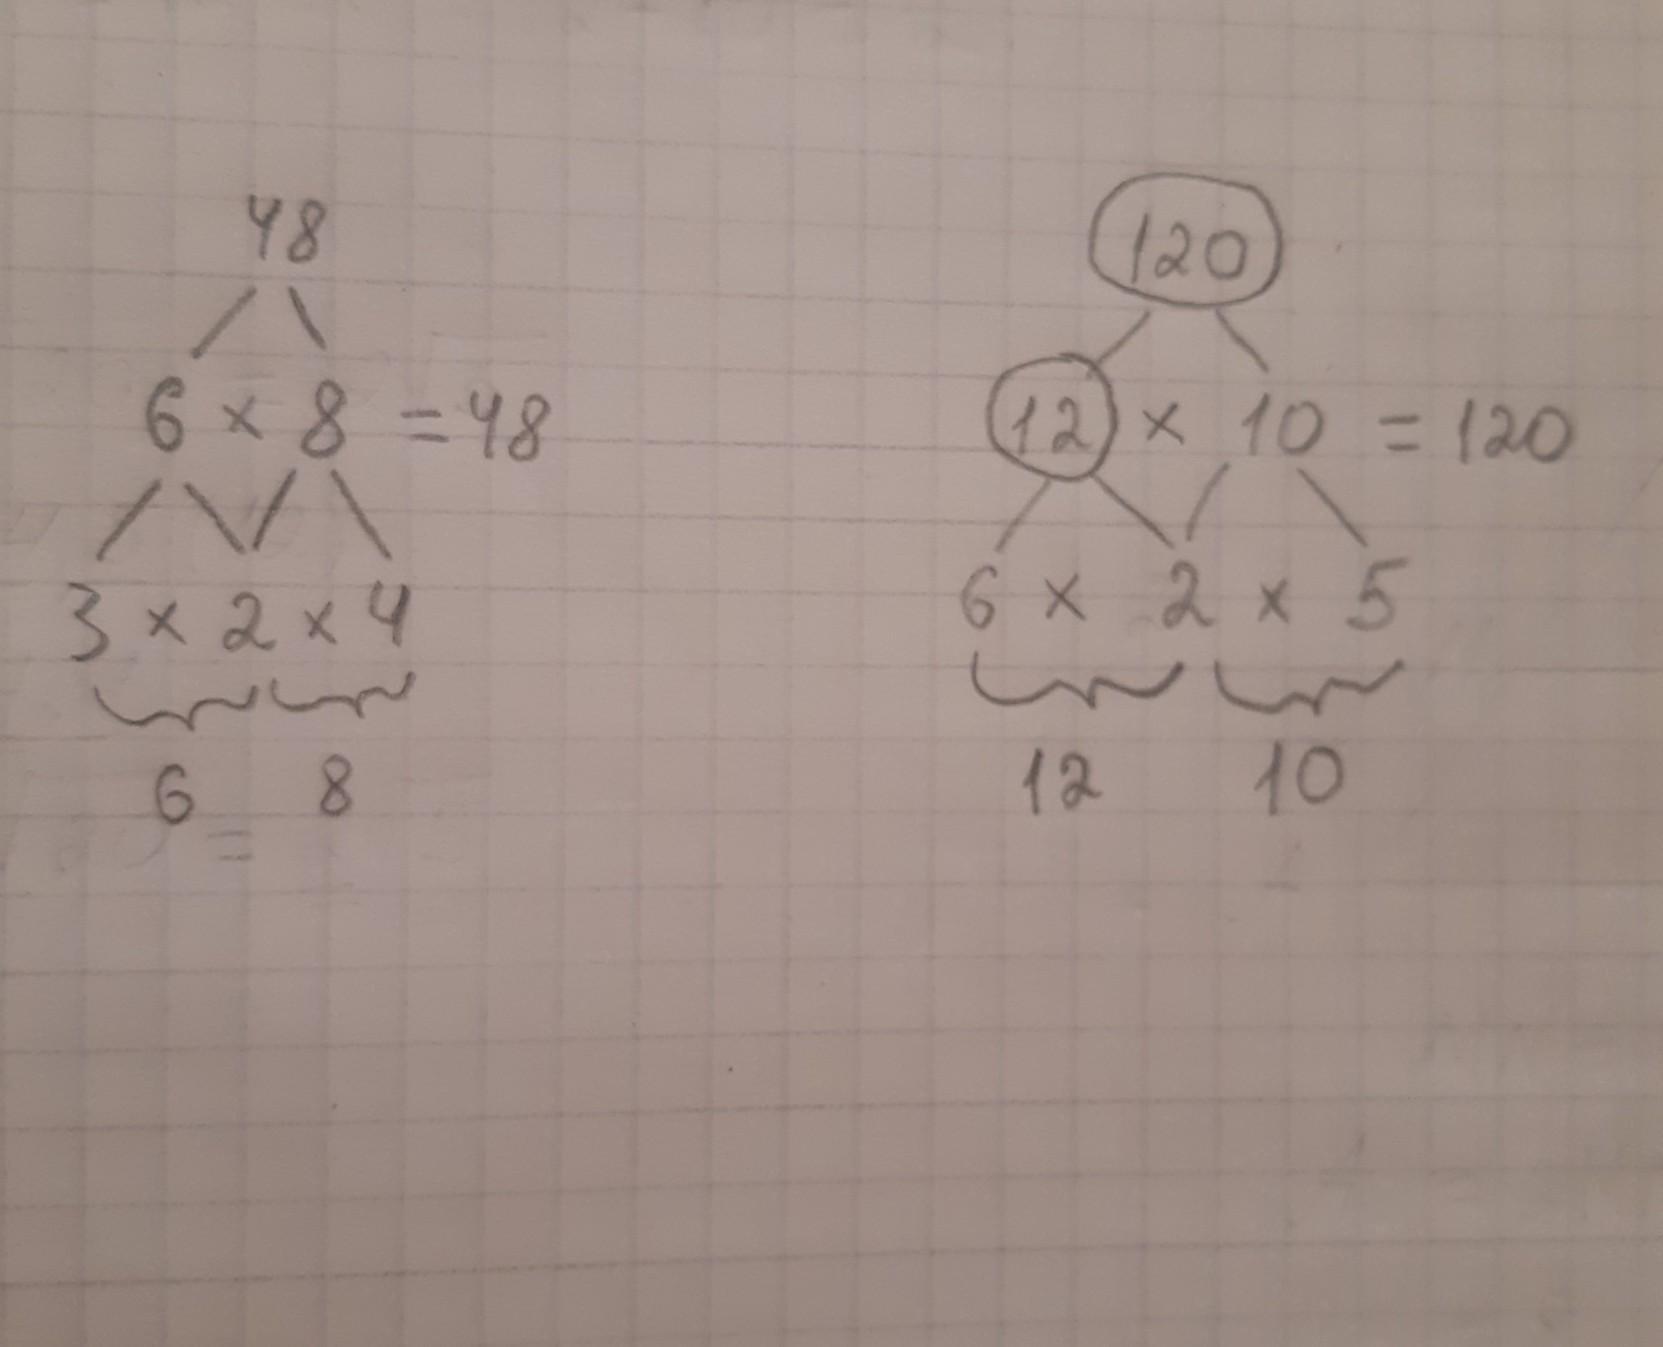 48
6 × 8 = 48
3 × 2 × 4
6 = 8
120
12 × 10 = 120
6 × 2 × 5
12 10